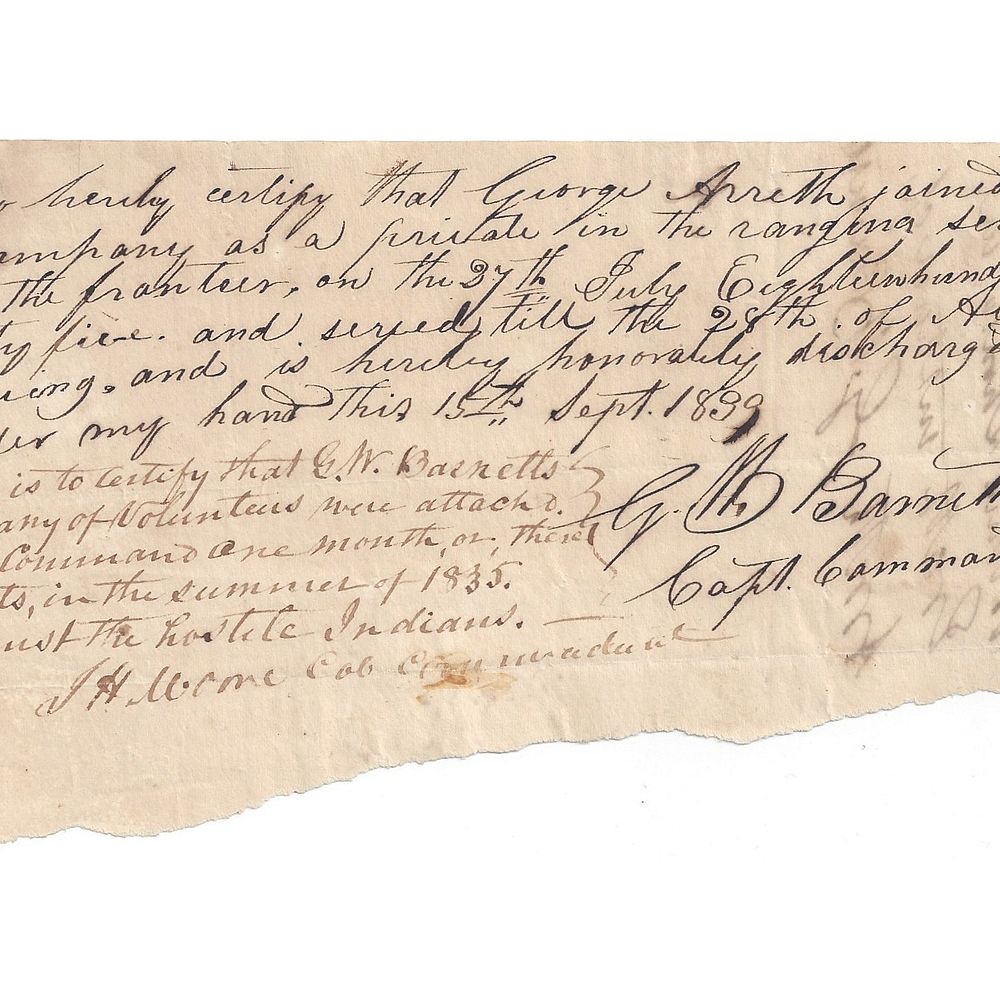 hereby certify that George Arreth joined
ompany as a private in the ranging se
the fronteer, on the 27th July Eighteenhund
ty five. and served till the 28th of Au
and is hereby honorably discharg d
der my hand this 15th Sept. 1839
G. W. Barnett
Capt. Comman
is to certify that G. W. Barnetts
any of Volunteers were attachd.
Command one month, or, there
ts, in the summer of 1835.
nst the hostile Indians.
J H Moore Col Commandant